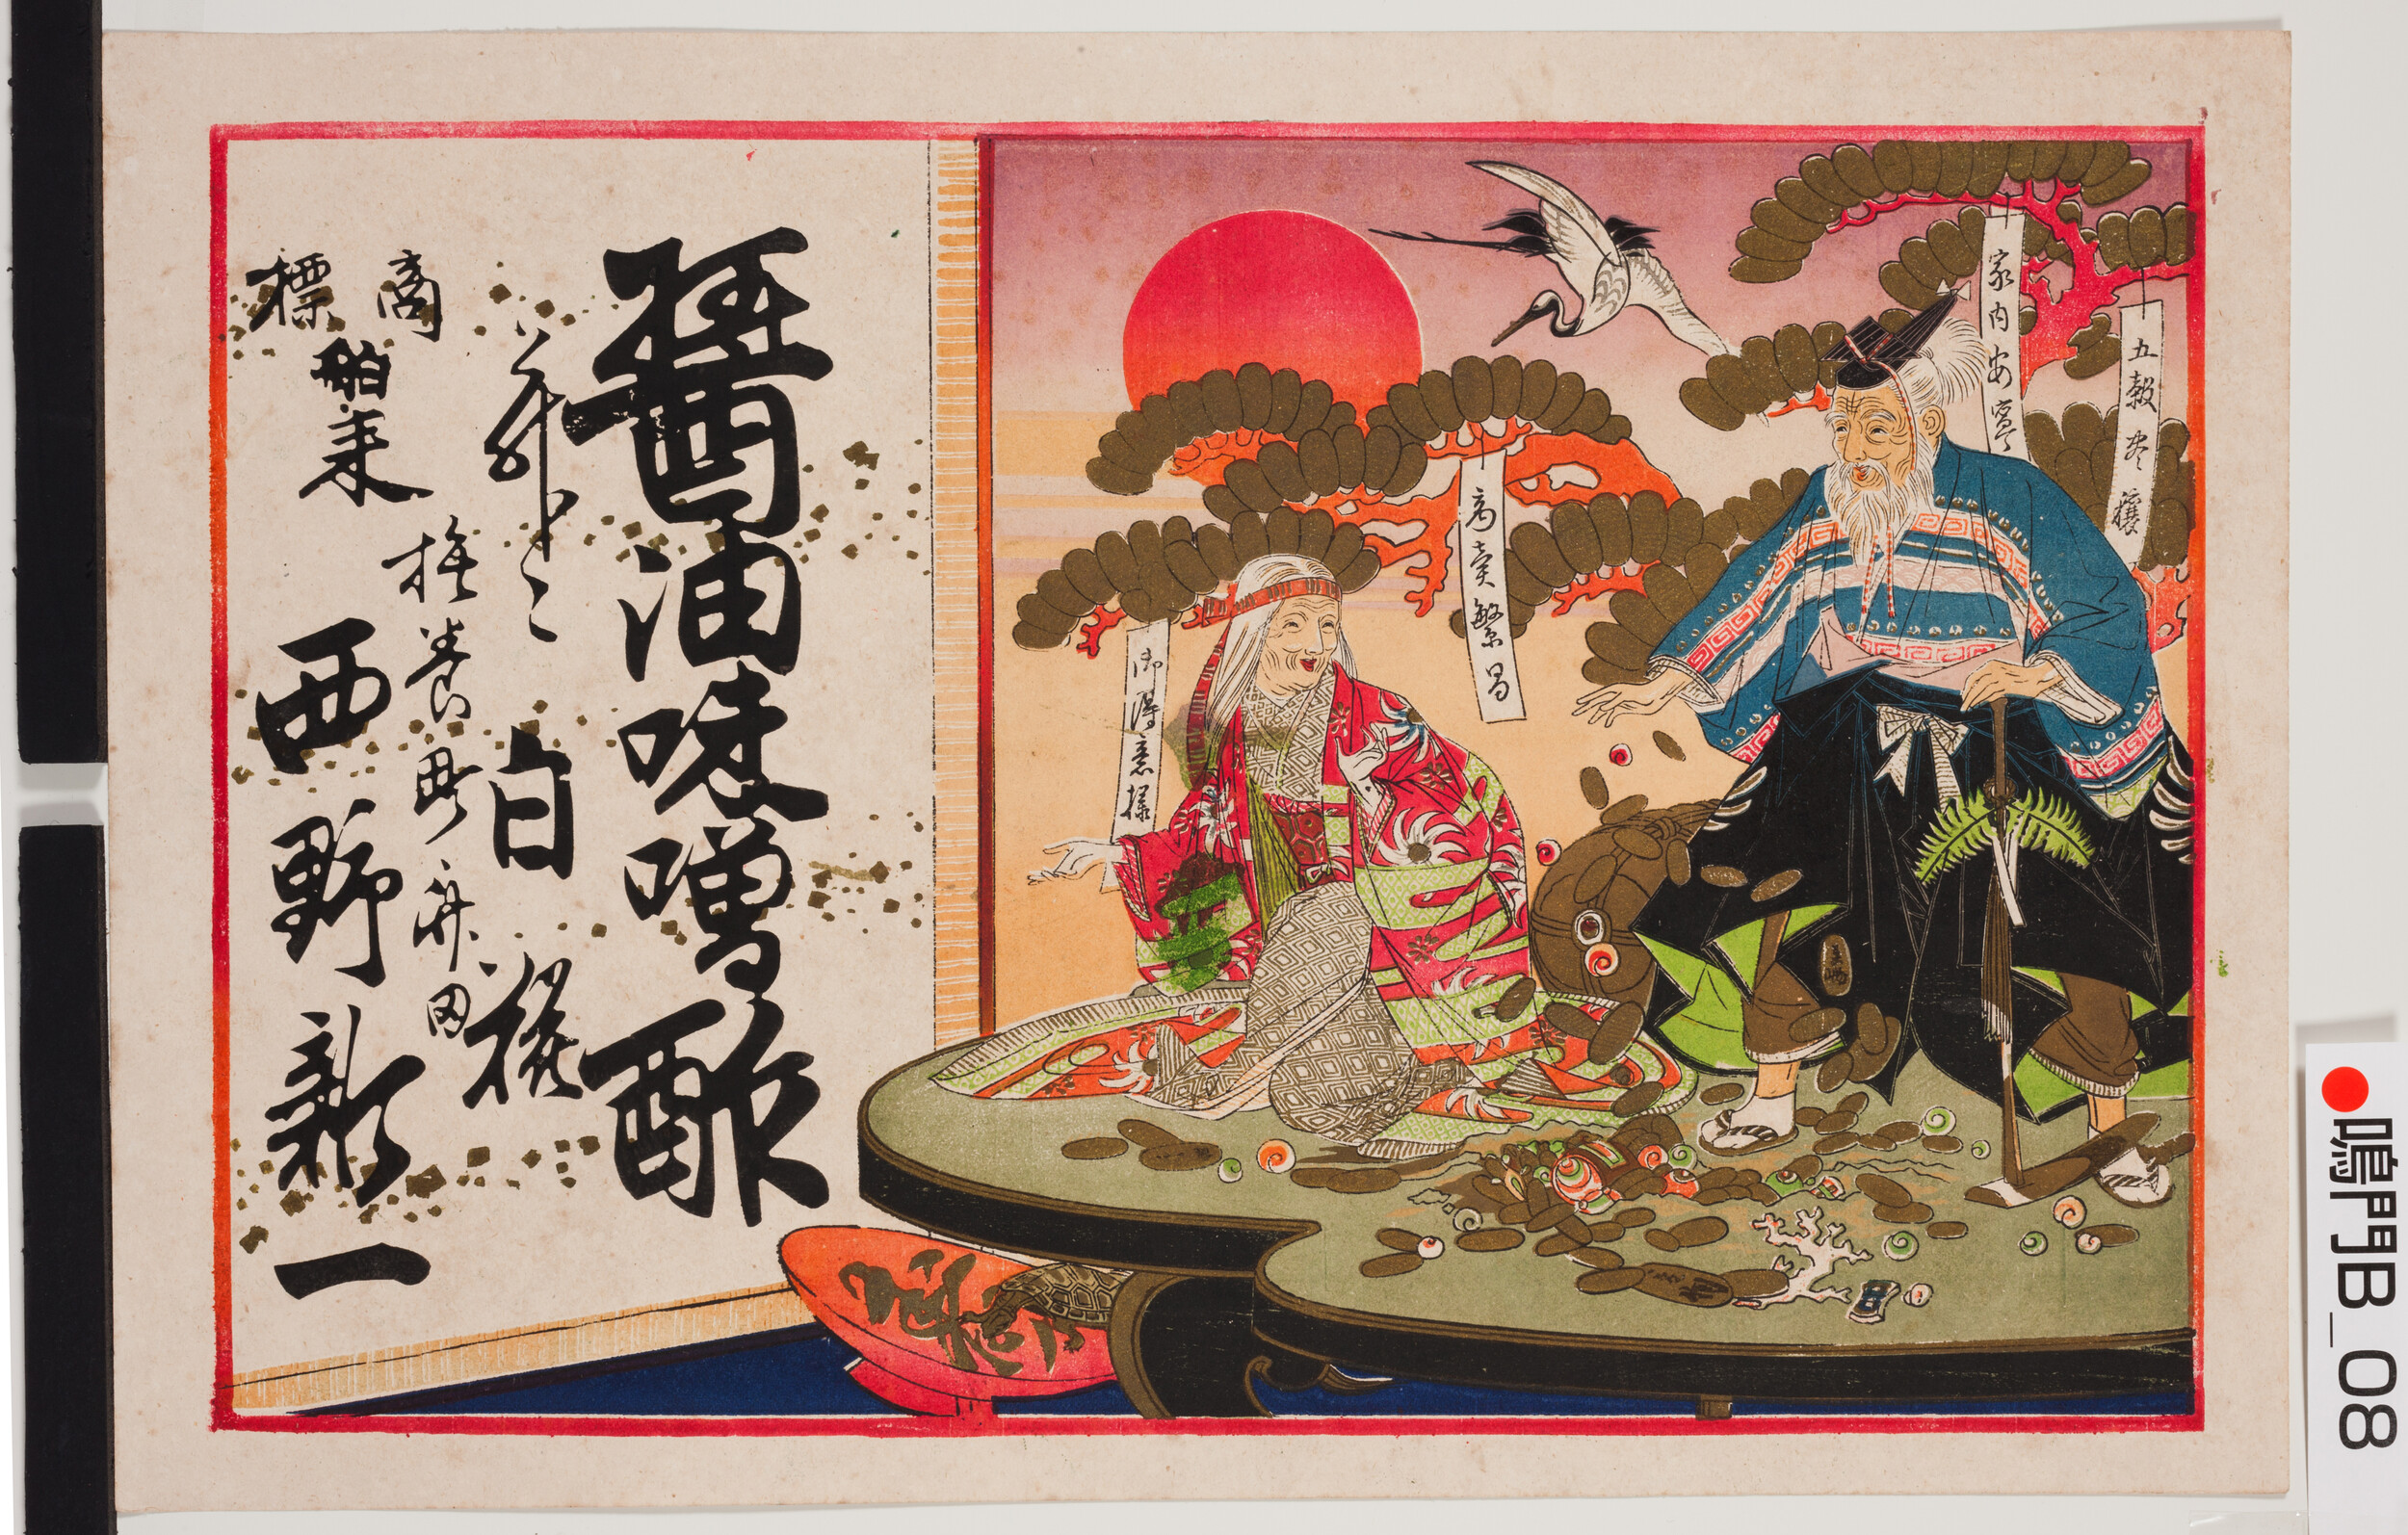 五穀豊穣
家内安寧
商売繁昌
御得意様
醤油味噌酢
白
商標
舶来
撫養町斉田
西野新一
鳴門B_08